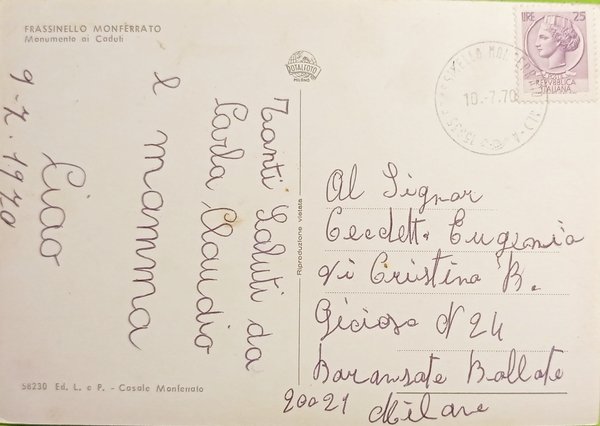 FRASSINELLO MONFERRATO
Monumento ai Caduti
ROTALFOTO
MILANO
Tanti Saluti da
Carla Claudio
e mamma
Ciao
9-7-1970
Riproduzione vietata
58230 Ed. L. e P. - Casale Monferrato
LIRE 25
REPVBBLICA
ITALIANA
10.-7.70
Al Signor
Eugenio
Vi Cristina B.
Gioiosa N 24
Baransate Bollate
20021 Milano